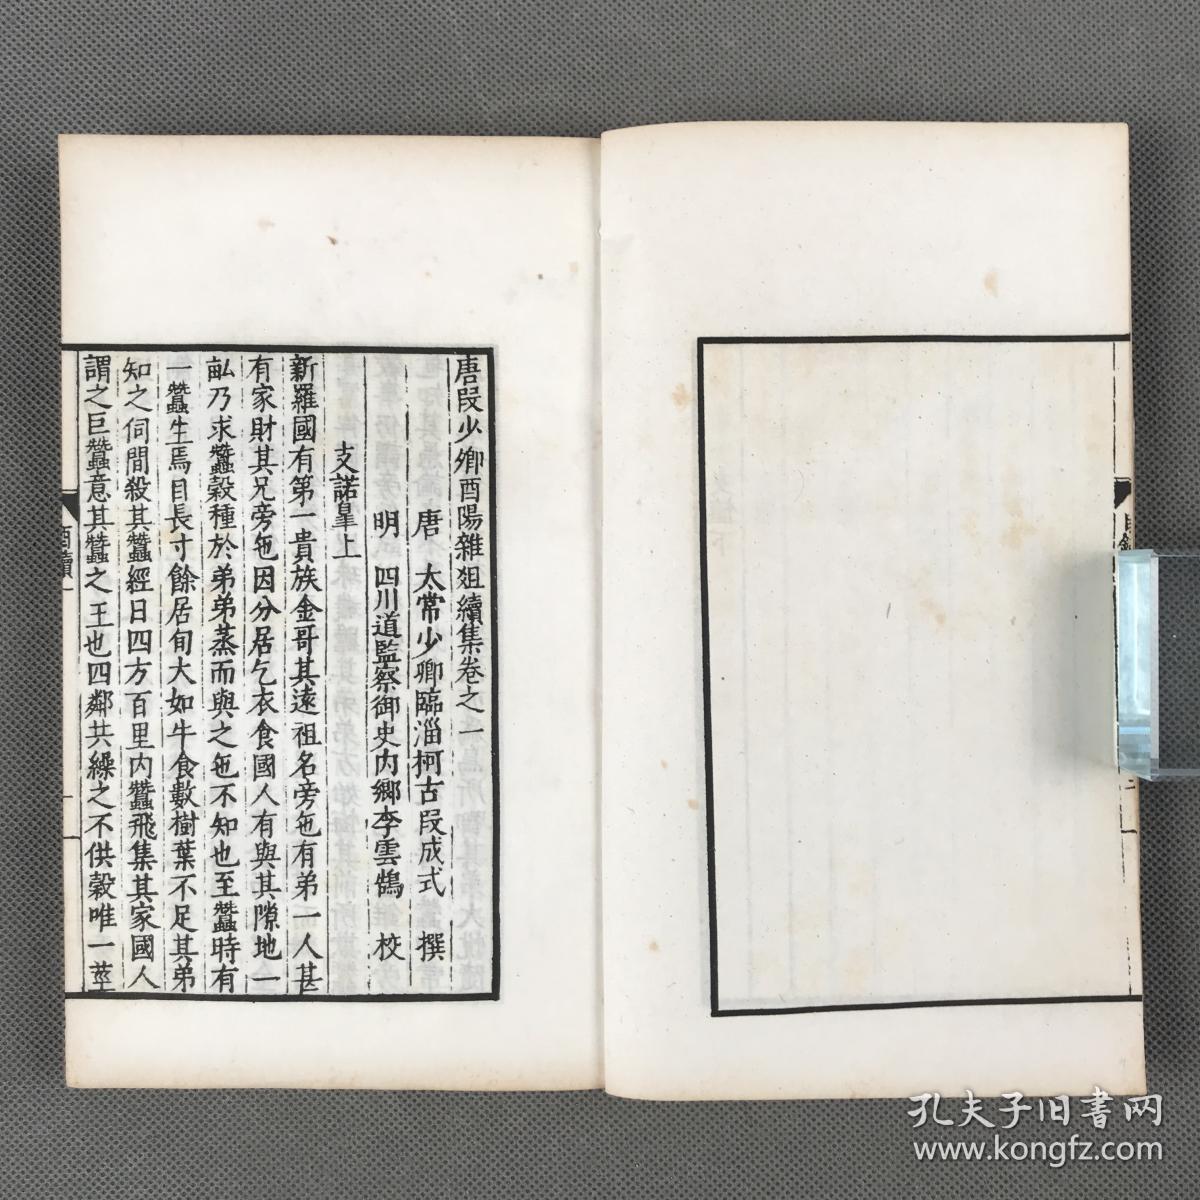 唐段少卿酉陽雜俎續集卷之一
唐 太常少卿臨淄柯古段成式 撰
明 四川道監察御史內鄉李雲鵠 校
支諾皋上
新羅國有第一貴族金哥其遠祖名旁㐌有弟一人甚
有家財其兄旁㐌因分居乞衣食國人有與其隙地一
畝乃求蠶穀種於弟弟蒸而與之㐌不知也至蠶時有
一蠶生焉目長寸餘居旬大如牛食數樹葉不足其弟
知之伺間殺其蠶經日四方百里內蠶飛集其家國人
謂之巨蠶意其蠶之王也四鄰共繰之不供穀唯一莖
酉續一
孔夫子旧書网
www.kongfz.com